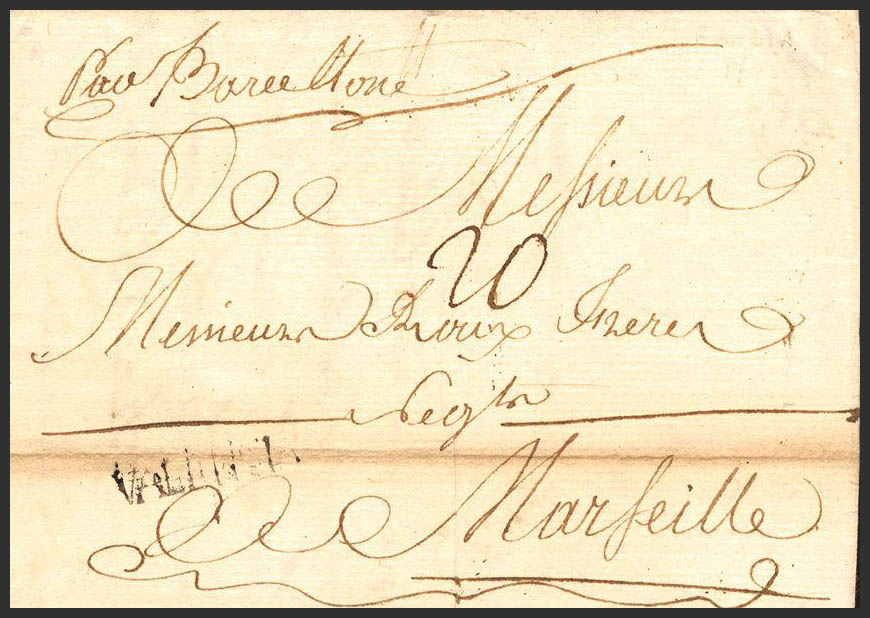 Par Barcellone
A Messieurs
20
Messieurs Roux Freres
Negts
VALENCIA
A Marseille